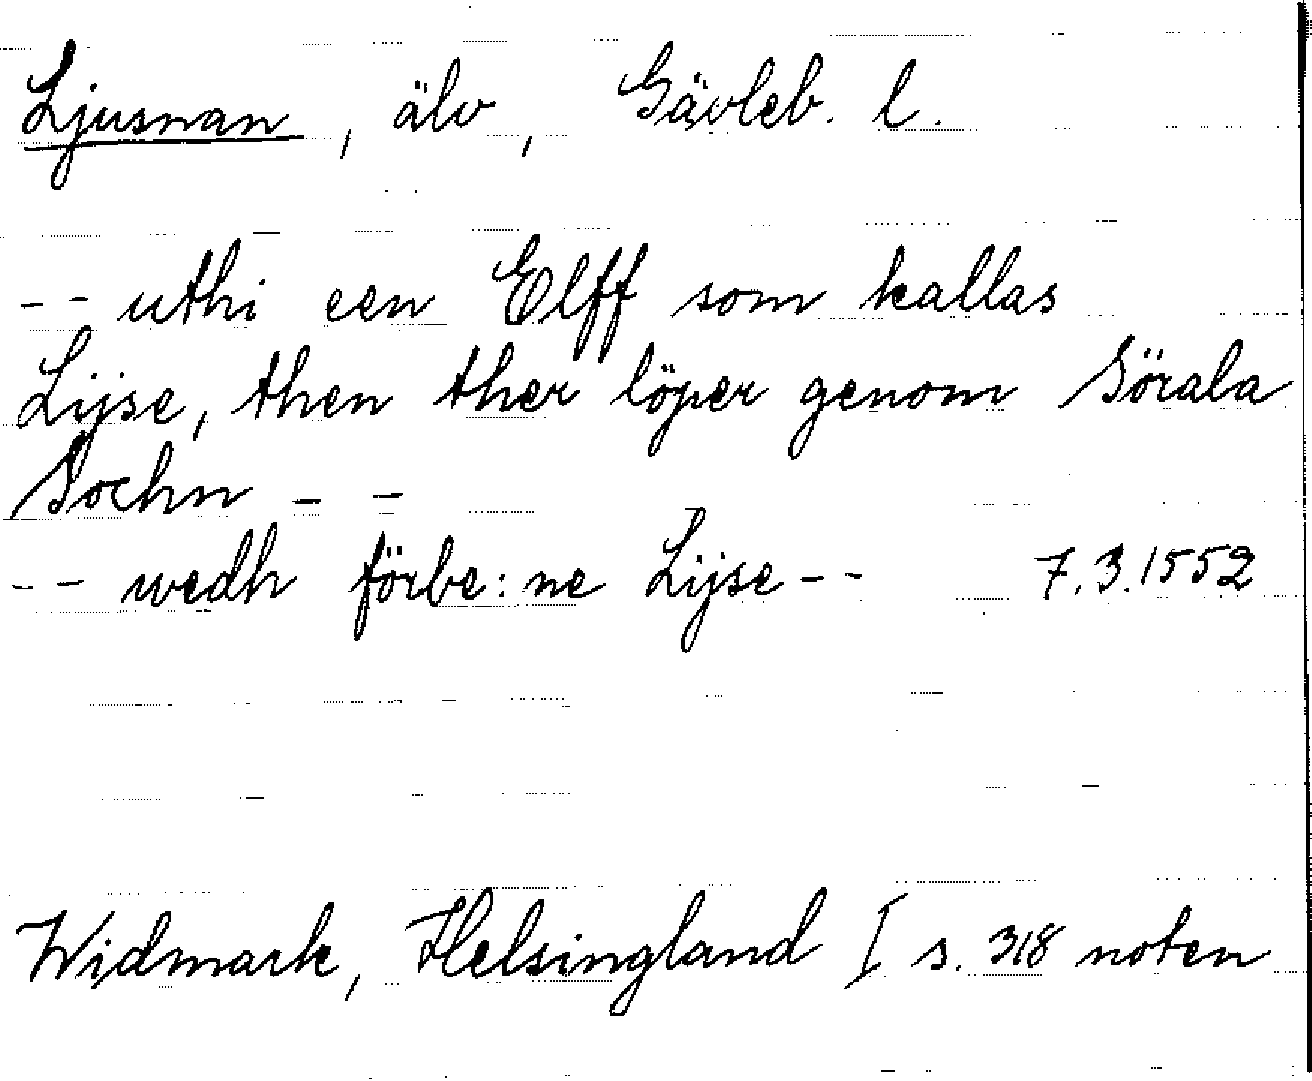 Ljusnan, älv, Gävleb. l.
-- uthi een Elff som kallas
Lijse, then ther löper genom Sörala
Sochn - -
-- wedh förbe:ne Lijse -- 7.3.1552
Widmark, Helsingland I s. 318 noten